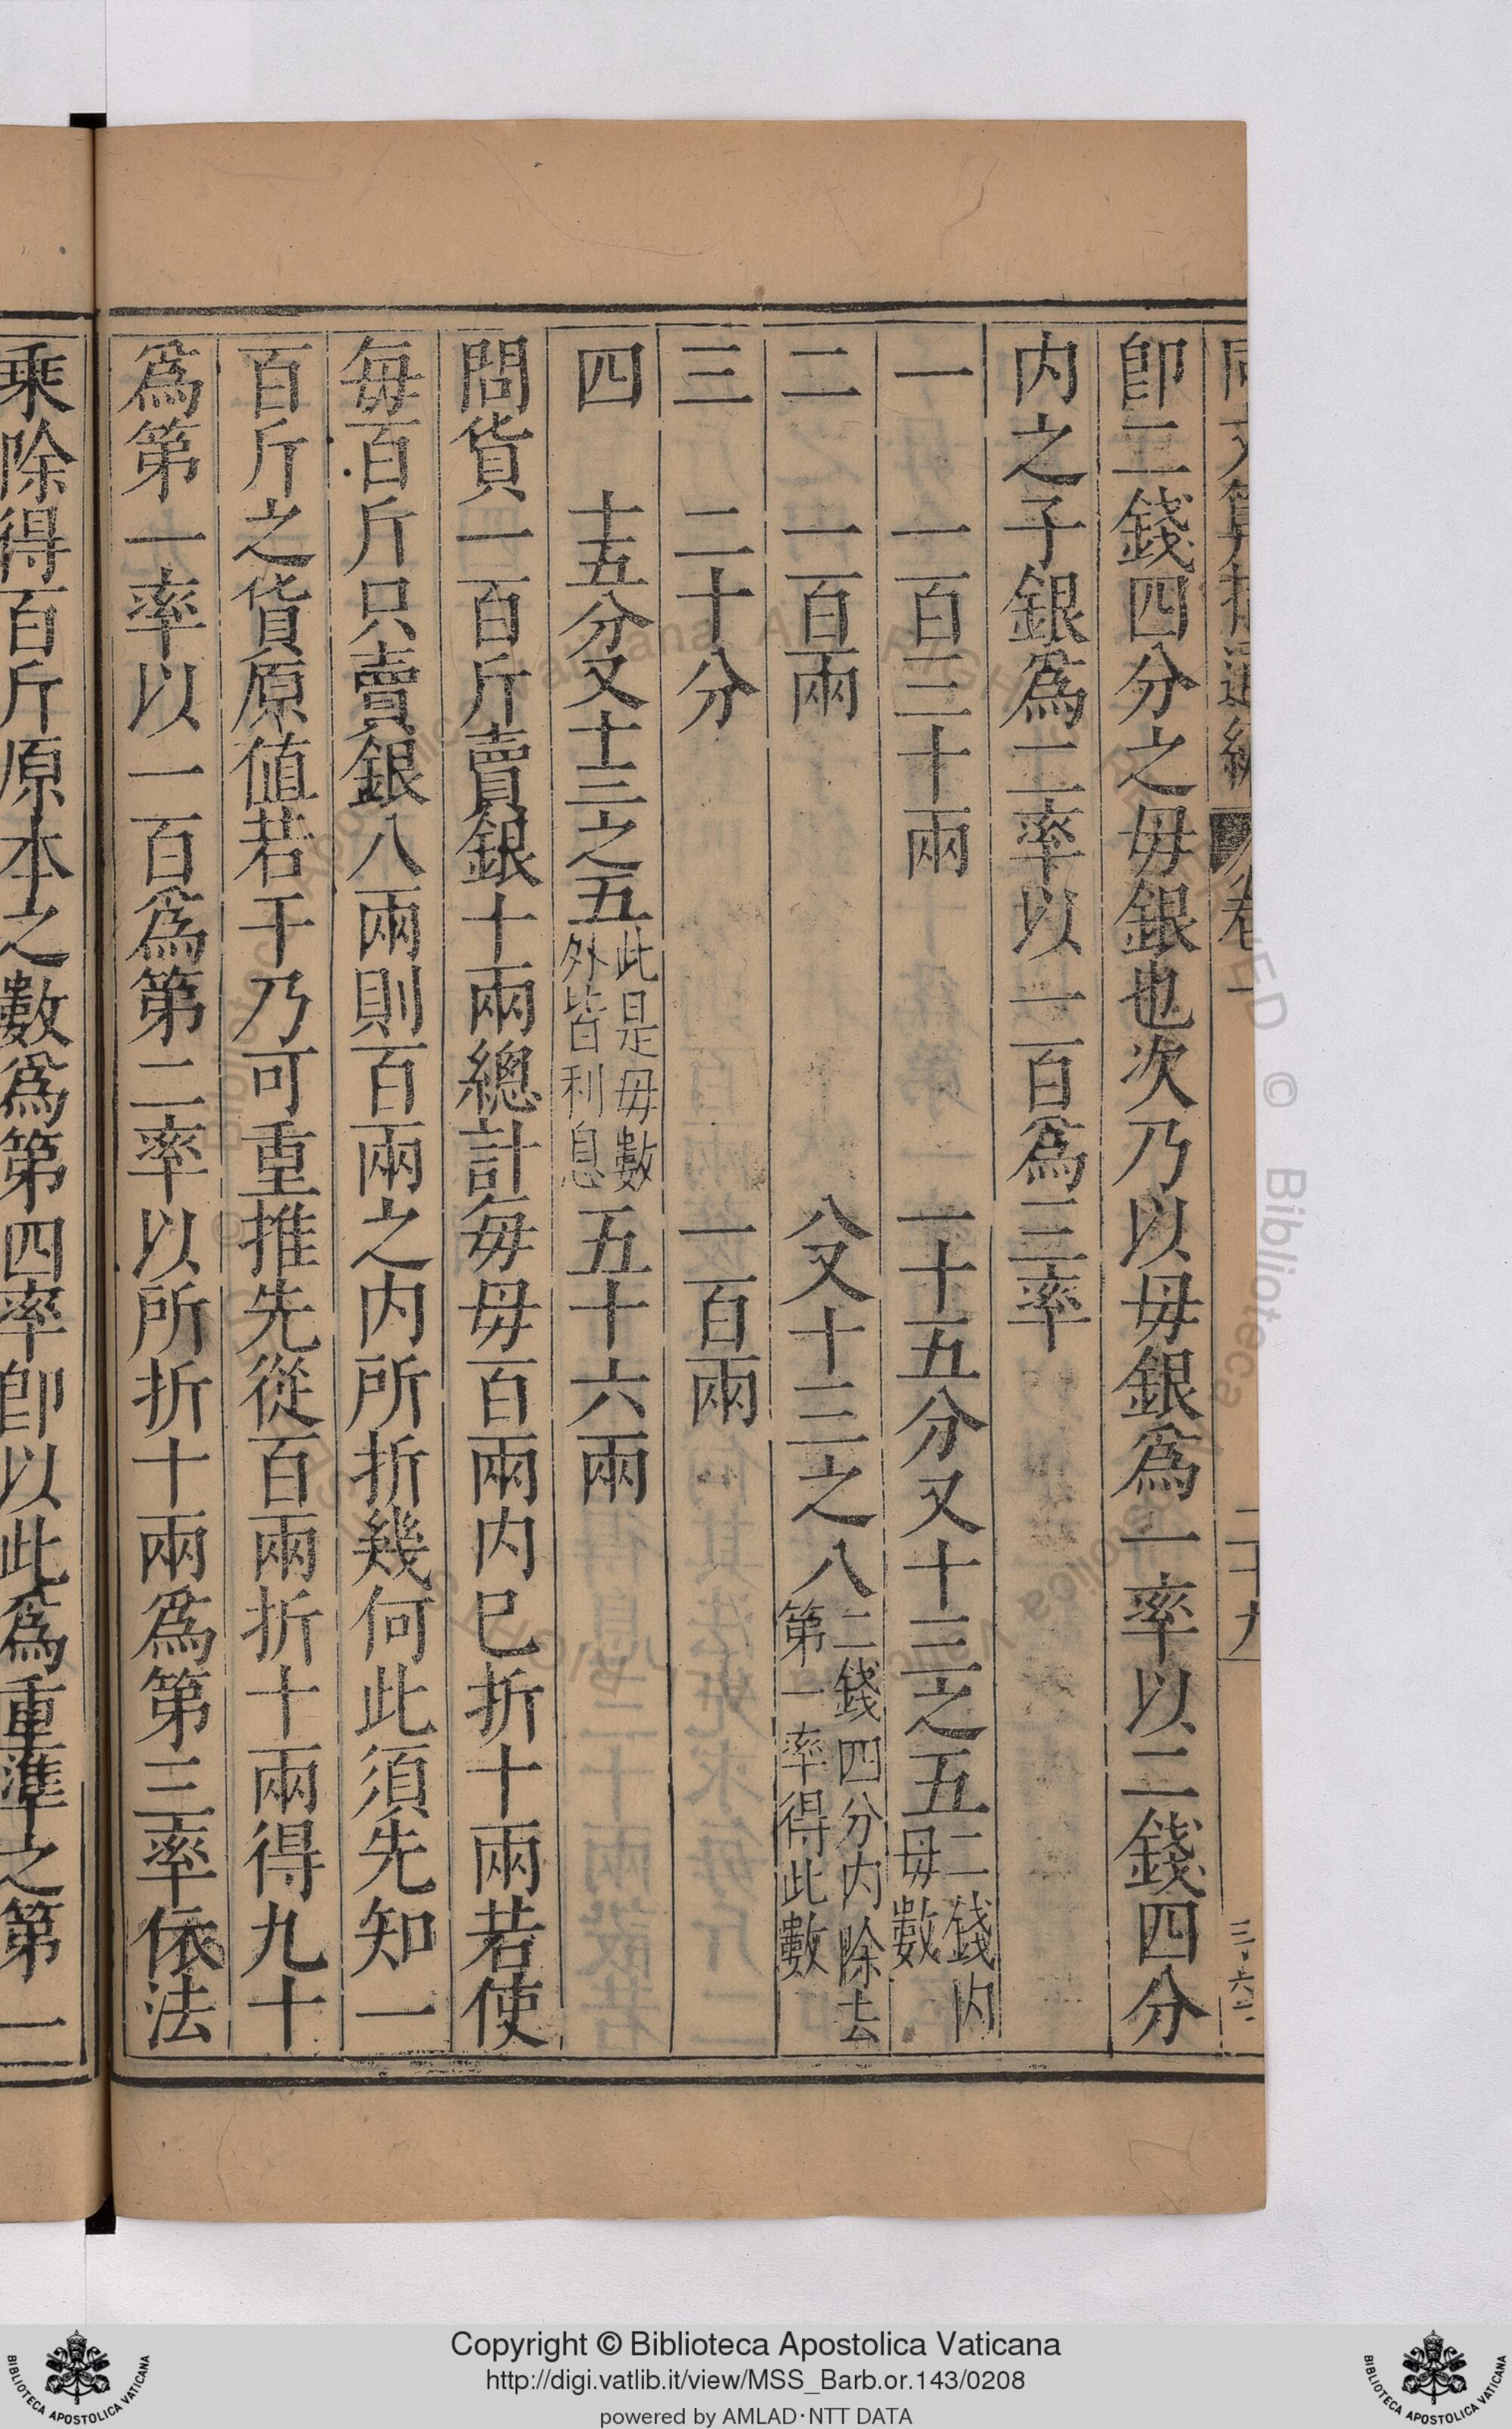 卽二錢四分之毋銀也次乃以毋銀爲一率以二錢四分
内之子銀爲二率以一百爲三率
一 一百三十兩 一十五分又十三之五二錢内毋數
二 一百兩 八又十三之八二錢四分内除去第一率得此數
三 二十分 一百兩
四 十五分又十三之五此是毋數外皆利息 五十六兩
問貨一百斤賣銀十兩總計每毋百兩内巳折十兩若使
每百斤只賣銀八兩則百兩之内所折幾何此須先知一
百斤之貨原値若干乃可重推先從百兩折十兩得九十
爲第一率以一百爲第二率以所折十兩爲第三率依法
乘除得百斤原本之數爲第四率卽以此爲重準之第二
Copyright © Biblioteca Apostolica Vaticana
http://digi.vatlib.it/view/MSS_Barb.or.143/0208
powered by AMLAD·NTT DATA
BIBLIOTECA APOSTOLICA VATICANA
BIBLIOTECA APOSTOLICA VATICANA